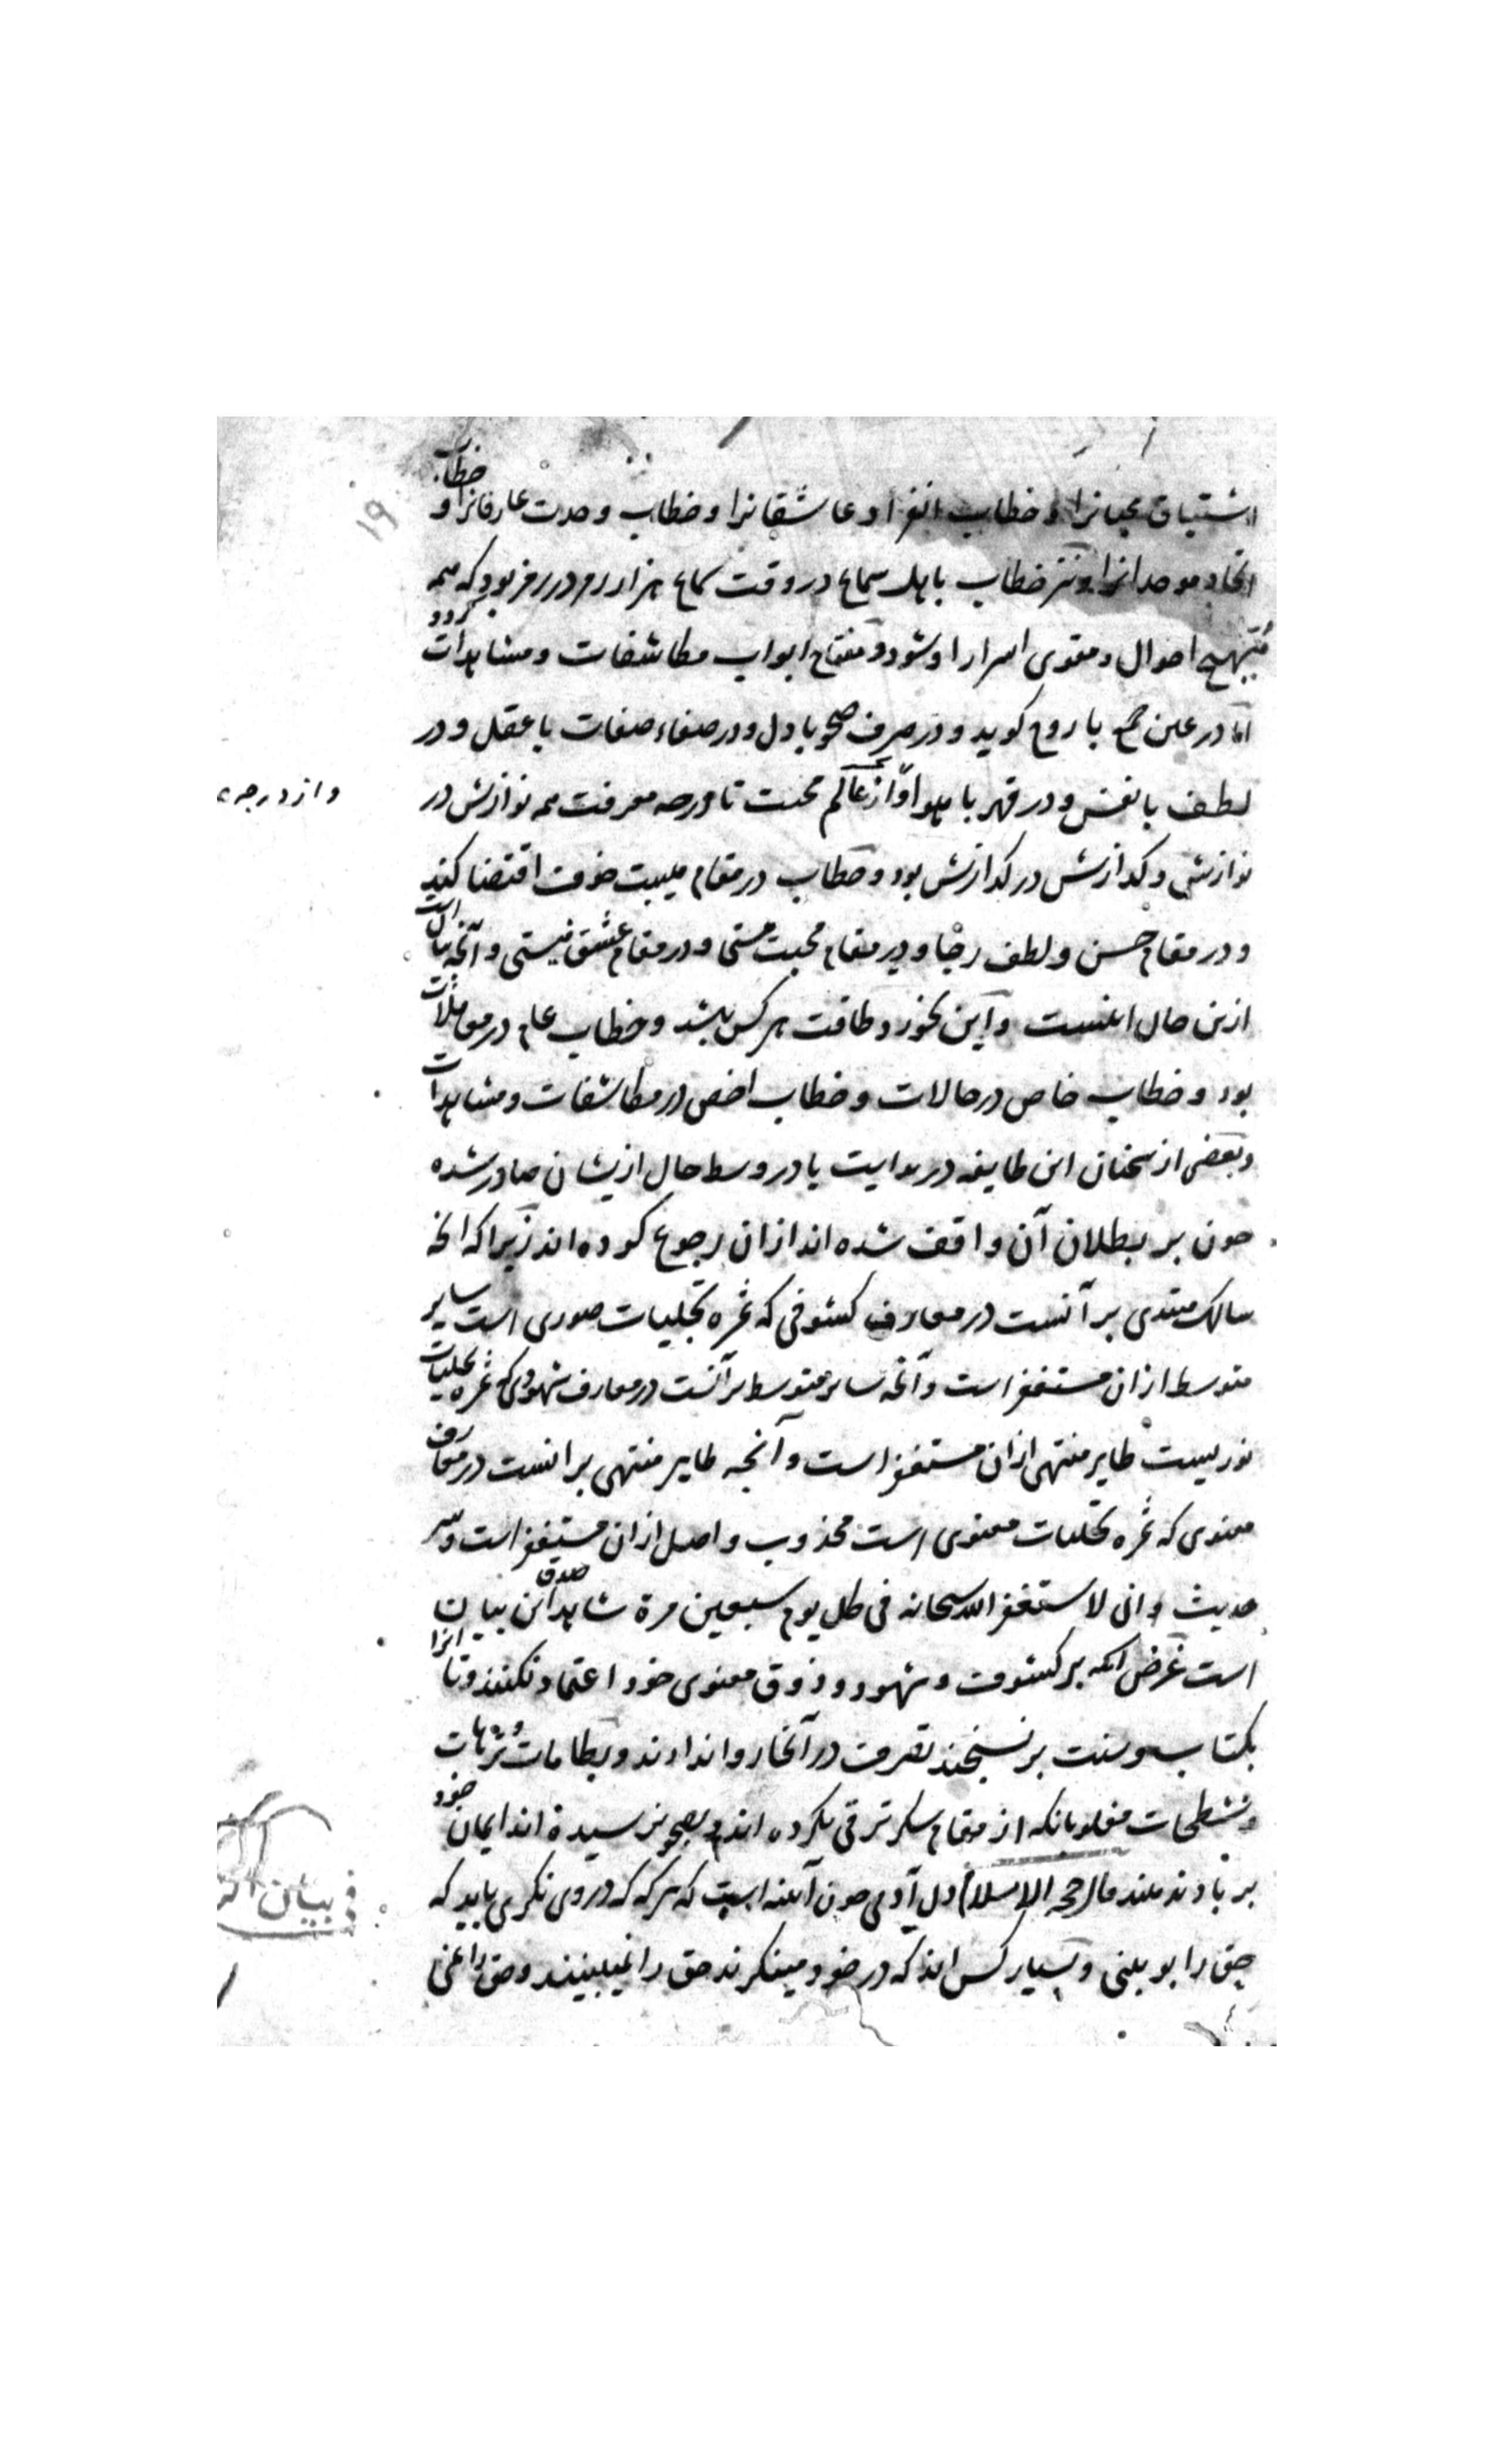 اشتیاق محبانرا و خطاب انفراد عاشقانرا و خطاب وحدت عارفانرا و خطاب
اتحاد موحدانرا و نیز خطاب باهل سماع در وقت سماع هزار رمز در رمز بود که همه
مهیج احوال و مقوی اسرار او شود و مفتاح ابواب مکاشفات و مشاهدات گردد
اما در عین جمع با روح گوید و در صرف صحو با دل و در صفاء صفات با عقل و در
لطف با نفس و در قهر با هوا و از عالم محبت تا درجه معرفت همه نوازش در
نوازش و گدازش در گدازش بود و خطاب در مقام هیبت خوف اقتضا کند
و در مقام حسن و لطف رجا و در مقام محبت مستی و در مقام عشق نیستی و آنچه
ازین حال اینست و این نخورد طاقت هر کس باشد و خطاب عام در معاملات
بود و خطاب خاص در حالات و خطاب اخص در مکاشفات و مشاهدات
و بعضی از سخنان این طایفه در بدایت یا در وسط حال ازیشان صادر شده
چون بر بطلان آن واقف شده اند ازان رجوع کرده اند زیرا که آنچه
سالک مبتدی بر آنست در معارف کشوفی که ثمره تجلیات صوری است سایر
متوسط ازان مستغفر است و آنچه سایر متوسط بر آنست در معارف شهودی که ثمره تجلیات
نوریست طایر منتهی ازان مستغفر است و آنچه طایر منتهی بر انست در معارف
معنوی که ثمره تجلیات معنوی است مجذوب واصل ازان مستغفر است و سر
حدیث و انی لاستغفر الله سبحانه فی کل یوم سبعین مرة شاهد صدق این بیان
است غرض آنکه بر کشوف و شهود و ذوق معنوی خود اعتماد نکنند و تا آنرا
بکتاب و سنت بر نسنجند تصرف در آنجا روا ندارند و بطامات و ترهات
و شطحیات مغلوبانکه از مقام سکر ترقی نکرده اند و بصحو نرسیدة اند ایمان خود
بر باد ندهند قال حجة الاسلام دل آدمی چون آینه است که هر که که در وی نگری باید که
حق را بوی بینی و بسیار کس اند که در خود مینگرند حق را نمیبینند و حق را
و از درجه
فی بیان
۱۹